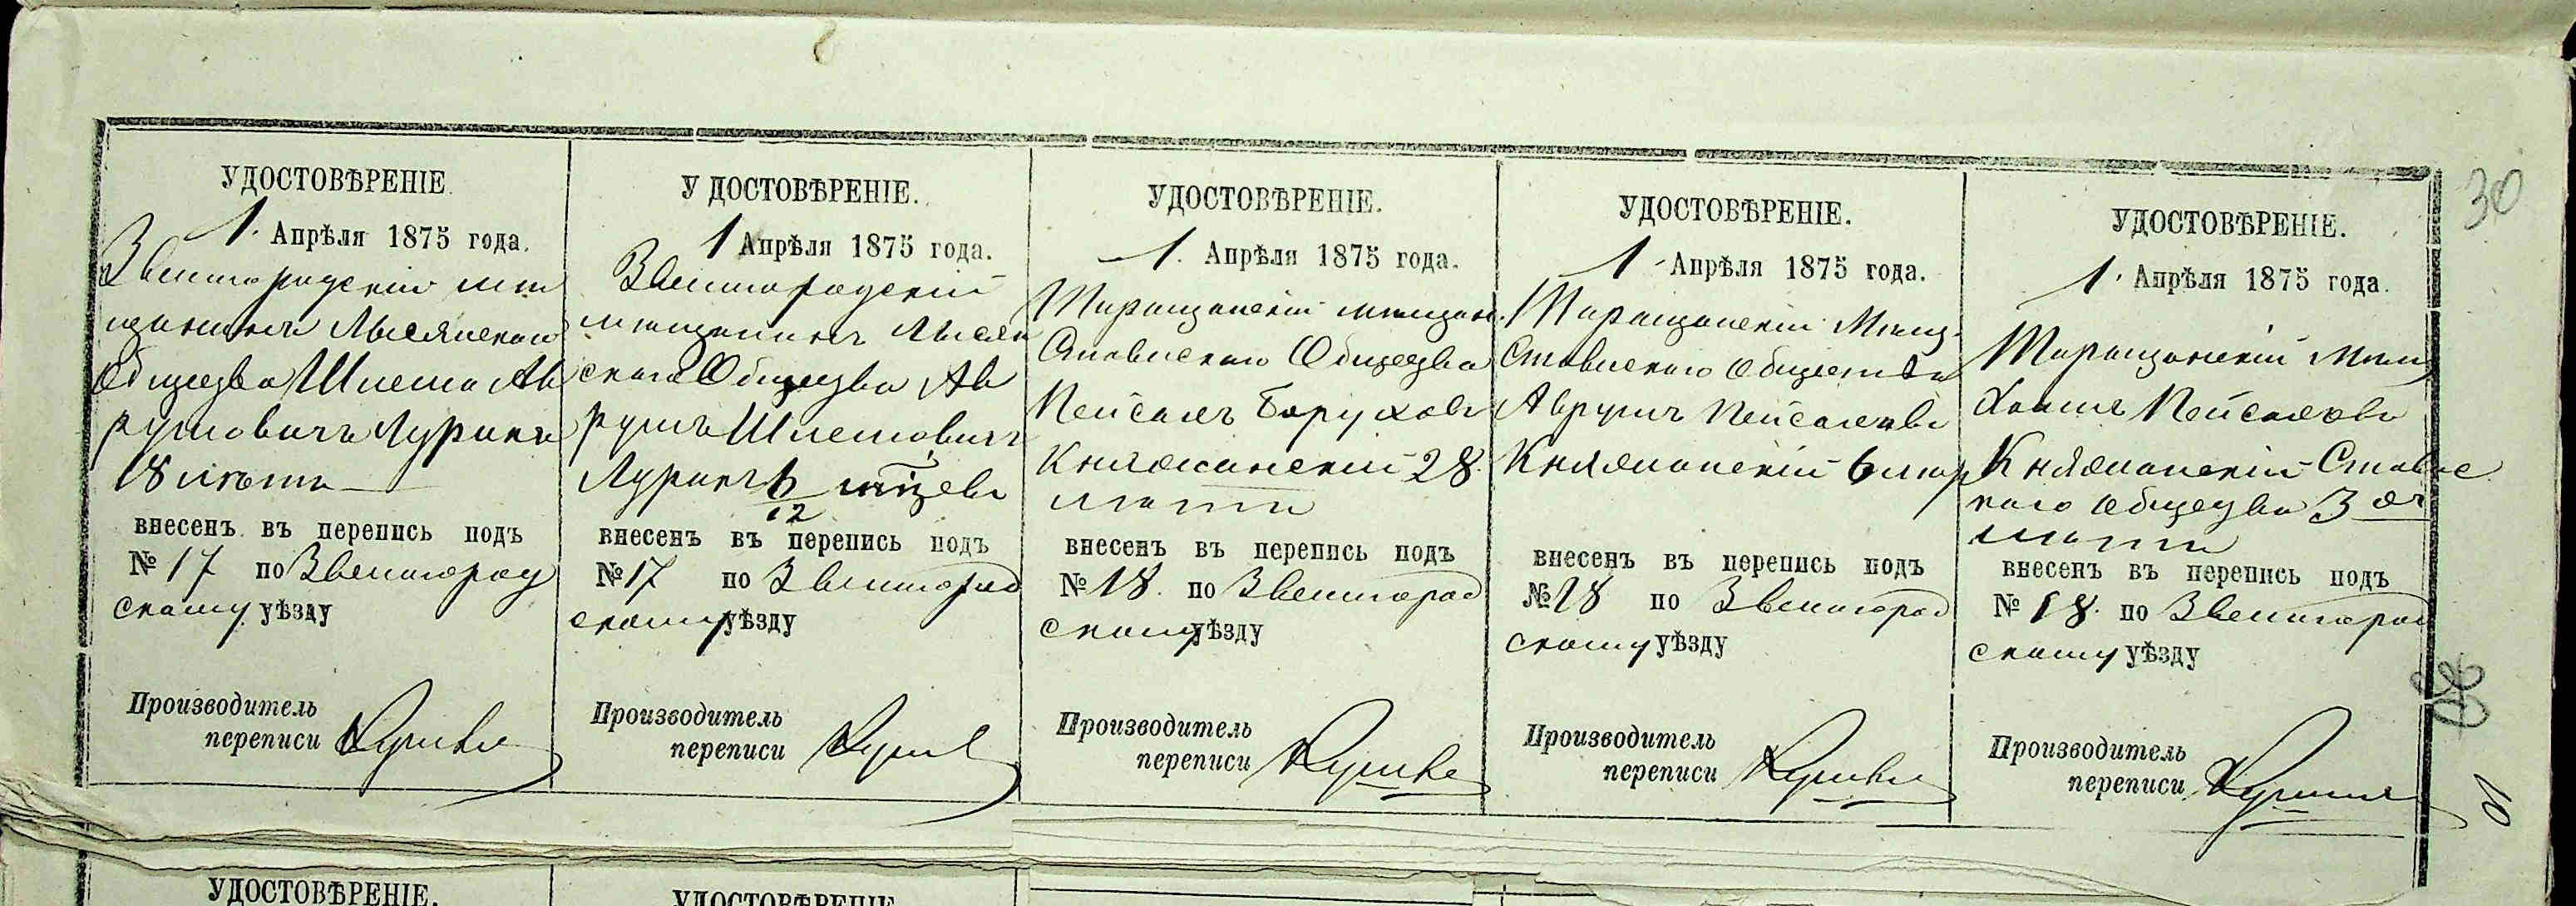 30
УДОСТОВѢРЕНІЕ.
1. Апрѣля 1875 года.
Звенигородскій мѣ
щанинъ Лысянскаго
Общества Шлема Ав
румовичъ Лурикъ
18 лѣтъ
внесенъ въ перепись подъ
№ 17 по Звенигород
скому уѣзду
Производитель
переписи
УДОСТОВѢРЕНІЕ.
1 Апрѣля 1875 года.
Звенигородскій
мѣщанинъ Лысян
скаго Общества Ав
румъ Шлемовичъ
Лурикъ 6/12
внесенъ въ перепись подъ
№ 17 по Звенигород
скому уѣзду
Производитель
переписи
УДОСТОВѢРЕНІЕ.
1. Апрѣля 1875 года.
Таращанскій мѣщан.
Ставискаго Общества
Пейсахъ Боруховъ
Княжанскій 28
лѣтъ
внесенъ въ перепись подъ
№ 18. по Звенигород
скому уѣзду
Производитель
переписи
УДОСТОВѢРЕНІЕ.
1 Апрѣля 1875 года.
Таращанскій Мѣщ.
Ставискаго Общества
Аврумъ Пейсаховъ
Княжанскій 6 лѣтъ
внесенъ въ перепись подъ
№ 18 по Звенигород
скому уѣзду
Производитель
переписи
УДОСТОВѢРЕНІЕ.
1. Апрѣля 1875 года.
Таращанскій Мѣщ
Хаимъ Пейсаховъ
Княжанскій Ставис
каго Общества 3 ох
лѣтъ
внесенъ въ перепись подъ
№ 18. по Звенигород
скому уѣзду
Производитель
переписи
УДОСТОВѢРЕНІЕ.
УДОСТОВѢРЕНІЕ